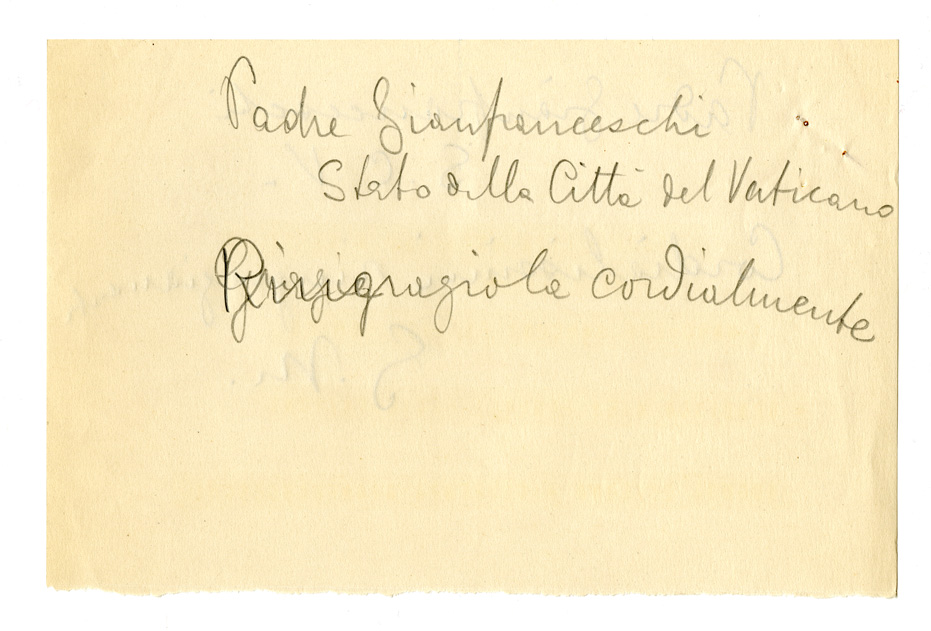 Padre Gianfranceschi
Stato della Città del Vaticano
Ringraziola cordialmente